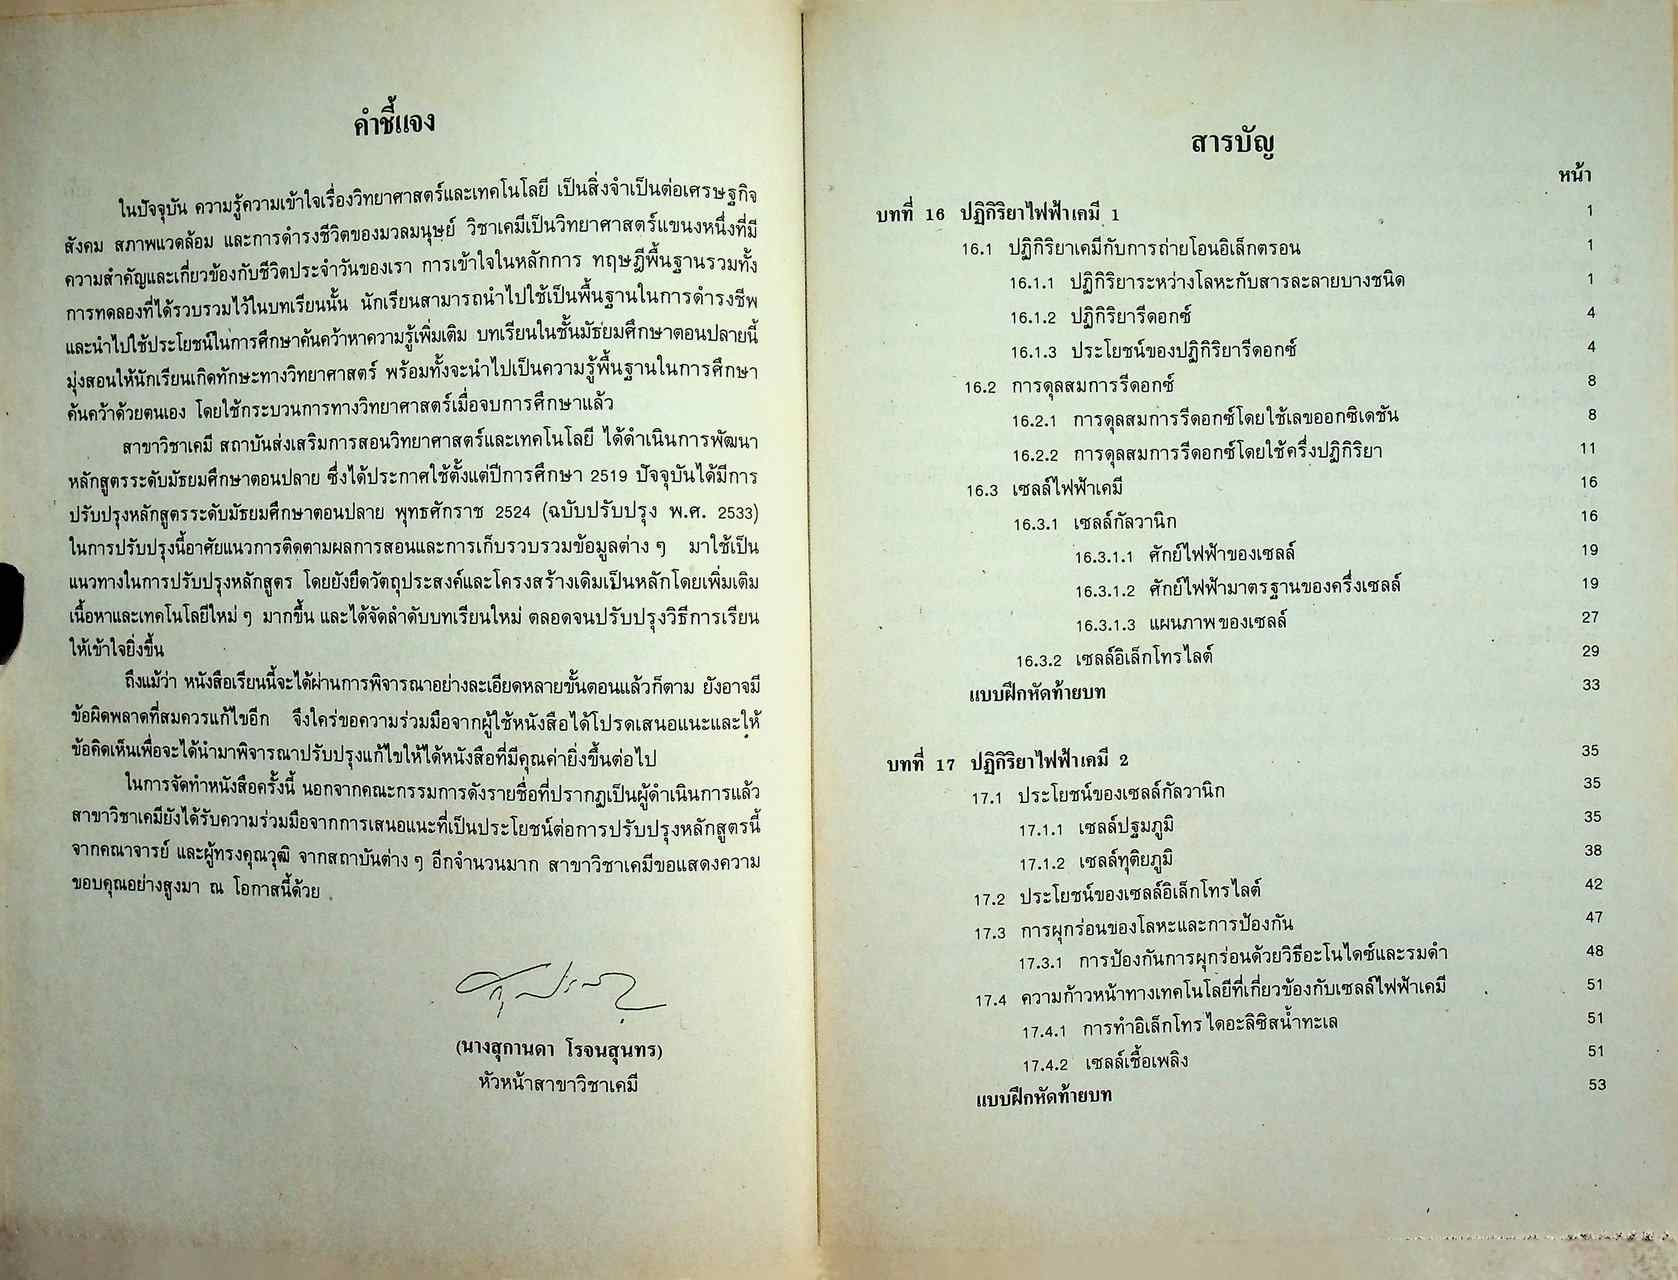 คำชี้แจง
ในปัจจุบัน ความรู้ความเข้าใจเรื่องวิทยาศาสตร์และเทคโนโลยี เป็นสิ่งจำเป็นต่อเศรษฐกิจ
สังคม สภาพแวดล้อม และการดำรงชีวิตของมวลมนุษย์ วิชาเคมีเป็นวิทยาศาสตร์แขนงหนึ่งที่มี
ความสำคัญและเกี่ยวข้องกับชีวิตประจำวันของเรา การเข้าใจในหลักการ ทฤษฎีพื้นฐานรวมทั้ง
การทดลองที่ได้รวบรวมไว้ในบทเรียนนั้น นักเรียนสามารถนำไปใช้เป็นพื้นฐานในการดำรงชีพ
และนำไปใช้ประโยชน์ในการศึกษาค้นคว้าหาความรู้เพิ่มเติม บทเรียนในชั้นมัธยมศึกษาตอนปลายนี้
มุ่งสอนให้นักเรียนเกิดทักษะทางวิทยาศาสตร์ พร้อมทั้งจะนำไปเป็นความรู้พื้นฐานในการศึกษา
ค้นคว้าด้วยตนเอง โดยใช้กระบวนการทางวิทยาศาสตร์เมื่อจบการศึกษาแล้ว
สาขาวิชาเคมี สถาบันส่งเสริมการสอนวิทยาศาสตร์และเทคโนโลยี ได้ดำเนินการพัฒนา
หลักสูตรระดับมัธยมศึกษาตอนปลาย ซึ่งได้ประกาศใช้ตั้งแต่ปีการศึกษา 2519 ปัจจุบันได้มีการ
ปรับปรุงหลักสูตรระดับมัธยมศึกษาตอนปลาย พุทธศักราช 2524 (ฉบับปรับปรุง พ.ศ. 2533)
ในการปรับปรุงนี้อาศัยแนวการติดตามผลการสอนและการเก็บรวบรวมข้อมูลต่าง ๆ มาใช้เป็น
แนวทางในการปรับปรุงหลักสูตร โดยยังยึดวัตถุประสงค์และโครงสร้างเดิมเป็นหลักโดยเพิ่มเติม
เนื้อหาและเทคโนโลยีใหม่ ๆ มากขึ้น และได้จัดลำดับบทเรียนใหม่ ตลอดจนปรับปรุงวิธีการเรียน
ให้เข้าใจยิ่งขึ้น
ถึงแม้ว่า หนังสือเรียนนี้จะได้ผ่านการพิจารณาอย่างละเอียดหลายขั้นตอนแล้วก็ตาม ยังอาจมี
ข้อผิดพลาดที่สมควรแก้ไขอีก จึงใคร่ขอความร่วมมือจากผู้ใช้หนังสือได้โปรดเสนอแนะและให้
ข้อคิดเห็นเพื่อจะได้นำมาพิจารณาปรับปรุงแก้ไขให้ได้หนังสือที่มีคุณค่ายิ่งขึ้นต่อไป
ในการจัดทำหนังสือครั้งนี้ นอกจากคณะกรรมการดังรายชื่อที่ปรากฏเป็นผู้ดำเนินการแล้ว
สาขาวิชาเคมียังได้รับความร่วมมือจากการเสนอแนะที่เป็นประโยชน์ต่อการปรับปรุงหลักสูตรนี้
จากคณาจารย์ และผู้ทรงคุณวุฒิ จากสถาบันต่าง ๆ อีกจำนวนมาก สาขาวิชาเคมีขอแสดงความ
ขอบคุณอย่างสูงมา ณ โอกาสนี้ด้วย
(นางสุกานดา โรจนสุนทร)
หัวหน้าสาขาวิชาเคมี
สารบัญ
หน้า
บทที่ 16 ปฏิกิริยาไฟฟ้าเคมี 1 1
16.1 ปฏิกิริยาเคมีกับการถ่ายโอนอิเล็กตรอน 1
16.1.1 ปฏิกิริยาระหว่างโลหะกับสารละลายบางชนิด 1
16.1.2 ปฏิกิริยารีดอกซ์ 4
16.1.3 ประโยชน์ของปฏิกิริยารีดอกซ์ 4
16.2 การดุลสมการรีดอกซ์ 8
16.2.1 การดุลสมการรีดอกซ์โดยใช้เลขออกซิเดชัน 8
16.2.2 การดุลสมการรีดอกซ์โดยใช้ครึ่งปฏิกิริยา 11
16.3 เซลล์ไฟฟ้าเคมี 16
16.3.1 เซลล์กัลวานิก 16
16.3.1.1 ศักย์ไฟฟ้าของเซลล์ 19
16.3.1.2 ศักย์ไฟฟ้ามาตรฐานของครึ่งเซลล์ 19
16.3.1.3 แผนภาพของเซลล์ 27
16.3.2 เซลล์อิเล็กโทรไลต์ 29
แบบฝึกหัดท้ายบท 33
บทที่ 17 ปฏิกิริยาไฟฟ้าเคมี 2 35
17.1 ประโยชน์ของเซลล์กัลวานิก 35
17.1.1 เซลล์ปฐมภูมิ 35
17.1.2 เซลล์ทุติยภูมิ 38
17.2 ประโยชน์ของเซลล์อิเล็กโทรไลต์ 42
17.3 การผุกร่อนของโลหะและการป้องกัน 47
17.3.1 การป้องกันการผุกร่อนด้วยวิธีอะโนไดซ์และรมดำ 48
17.4 ความก้าวหน้าทางเทคโนโลยีที่เกี่ยวข้องกับเซลล์ไฟฟ้าเคมี 51
17.4.1 การทำอิเล็กโทรไดอะลิซิสน้ำทะเล 51
17.4.2 เซลล์เชื้อเพลิง 51
แบบฝึกหัดท้ายบท 53